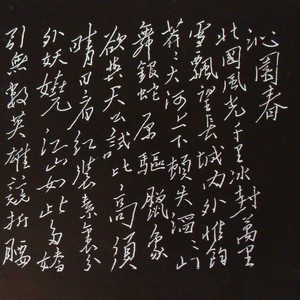 沁園春
北國風光千里冰封萬里
雪飄望長城内外惟餘
莽々大河上下頓失滔々山
舞銀蛇原驅臘象
欲與天公試比高須
晴日看紅裝素裹分
外妖嬈江山如此多嬌
引無數英雄競折腰